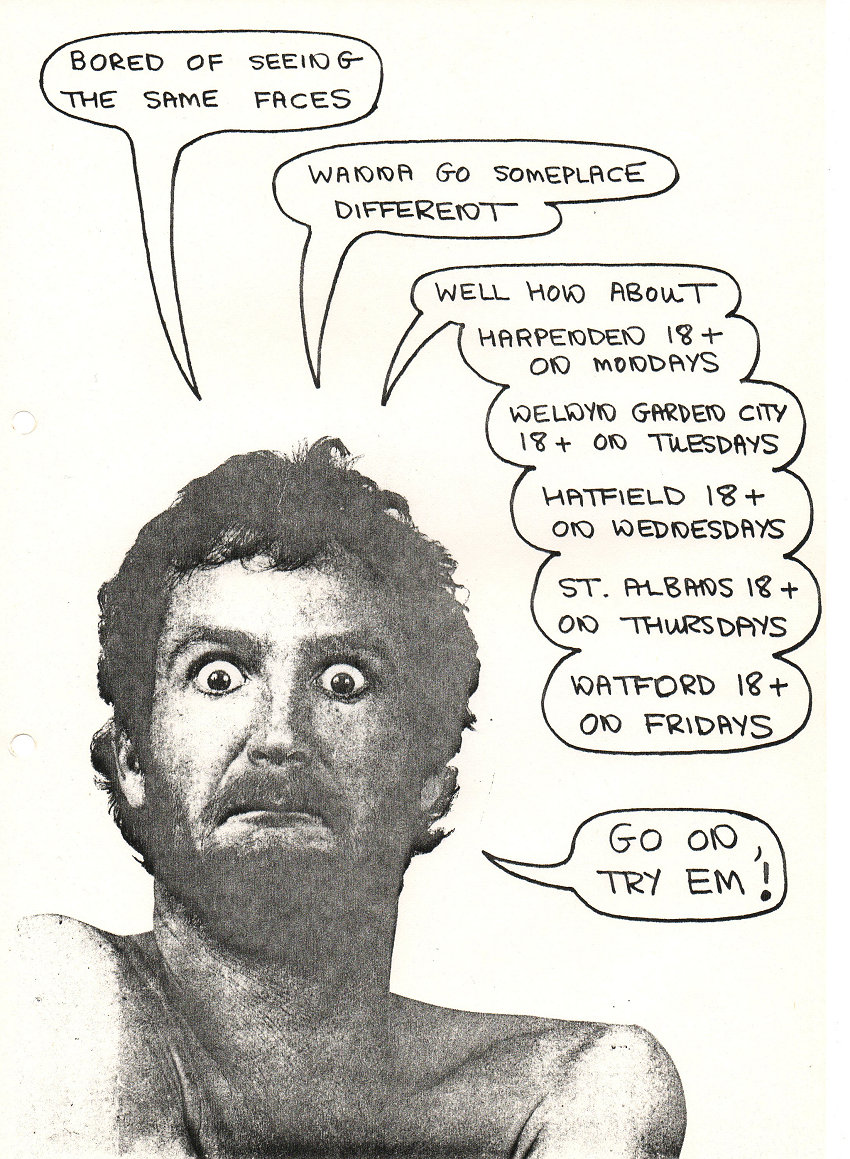 BORED OF SEEING
THE SAME FACES
WANNA GO SOMEPLACE
DIFFERENT
WELL HOW ABOUT
HARPENDEN 18+
ON MONDAYS
WELWYN GARDEN CITY
18+ ON TUESDAYS
HATFIELD 18+
ON WEDNESDAYS
ST. ALBANS 18+
ON THURSDAYS
WATFORD 18+
ON FRIDAYS
GO ON,
TRY EM!